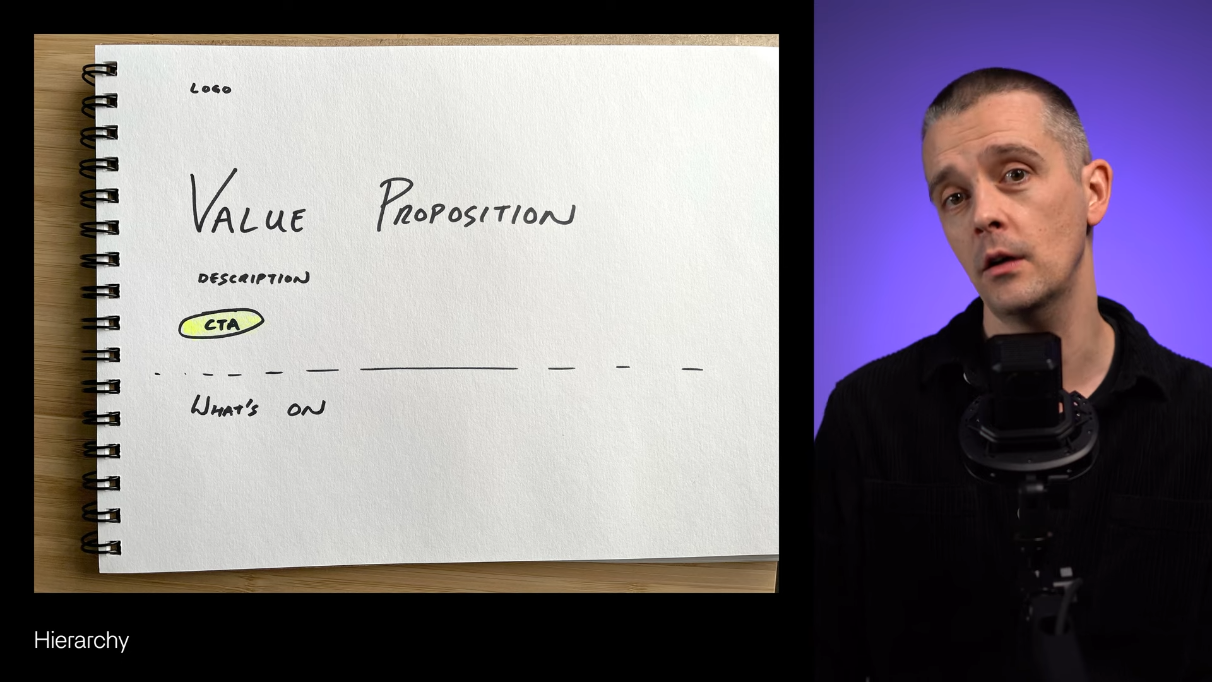 LOGO
VALUE PROPOSITION
DESCRIPTION
CTA
WHAT'S ON
Hierarchy